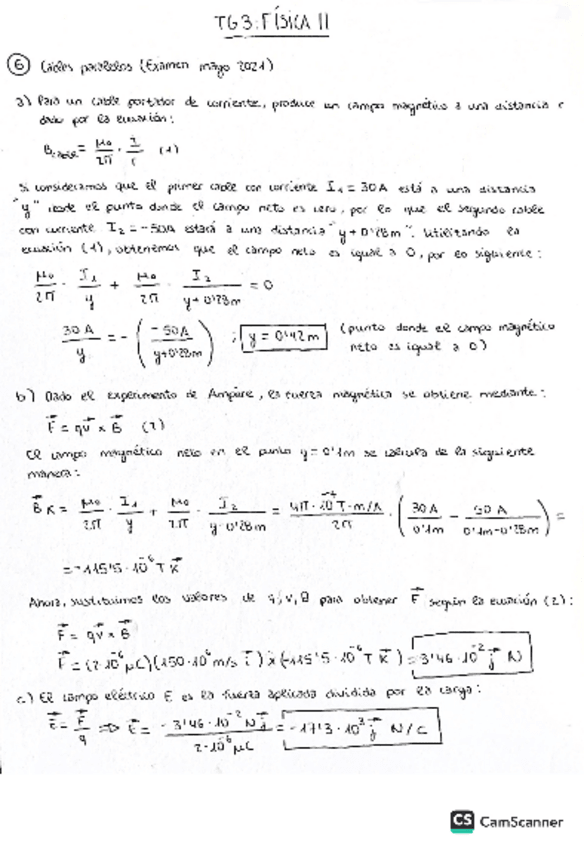 TG3: FÍSICA II
6 Cables paralelos (Examen mayo 2021)
a) Para un cable portador de corriente, produce un campo magnético a una distancia r
dado por la ecuación:
B cable = μ0/2π · I/r (1)
Si consideramos que el primer cable con corriente I1 = 30A está a una distancia
"y" desde el punto donde el campo neto es cero, por lo que el segundo cable
con corriente I2 = -50A estará a una distancia "y + 0'28m". Utilizando la
ecuación (1), obtenemos que el campo neto es igual a 0, por lo siguiente:
μ0/2π · I1/y + μ0/2π · I2/(y+0'28m) = 0
30 A/y = - (-50A/(y+0'28m)) ; y = 0'42m (punto donde el campo magnético
neto es igual a 0)
b) Dado el experimento de Ampère, la fuerza magnética se obtiene mediante:
F = qv × B (2)
El campo magnético neto en el punto y = 0'1m se calcula de la siguiente
manera:
B K = μ0/2π · I1/y + μ0/2π · I2/(y-0'28m) = 4π·10⁻⁷ T·m/A/2π · (30A/0'1m - 50A/(0'1m-0'28m)) =
= -115'5·10⁻⁶ T K
Ahora, sustituimos los valores de q, v, B para obtener F según la ecuación (2):
F = qv × B
F = (2·10⁻⁶ μC)(150·10⁶ m/s i) × (-115'5·10⁻⁶ T K) = 3'46·10⁻² j N
c) El campo eléctrico E es la fuerza aplicada dividida por la carga:
E = F/q ⇒ E = -3'46·10⁻² N j/2·10⁻⁶ μC = -17'3·10³ j N/C
CS CamScanner